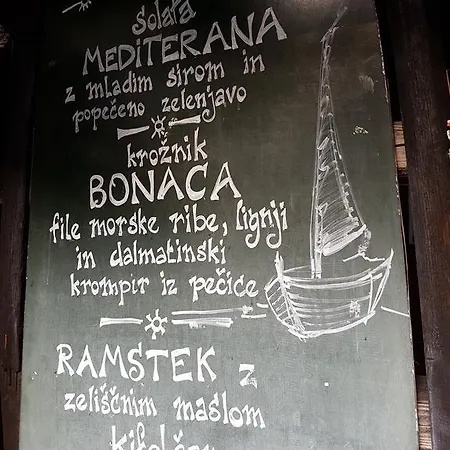 solata
MEDITERANA
z mladim sirom in
popečeno zelenjavo
krožnik
BONACA
file morske ribe, lignji
in dalmatinski
krompir iz pečice
RAMSTEK z
zeliščnim maslom